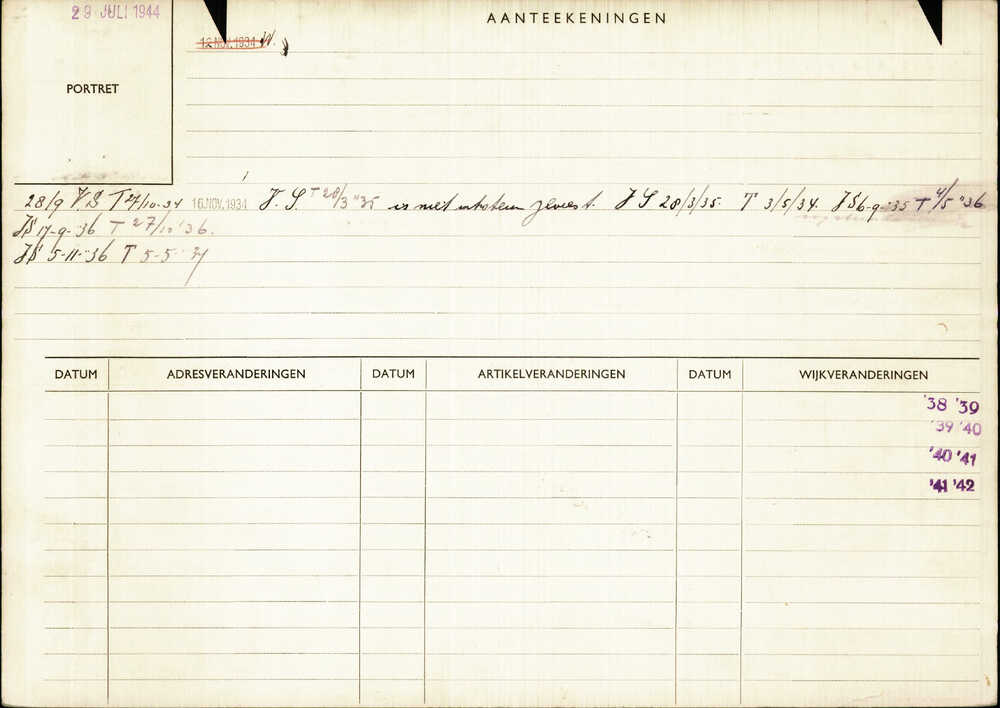 29 JULI 1944
AANTEEKENINGEN
12 NOV. 1934
PORTRET
28/9 VS T 27/10-34 16 NOV. 1934 J. S. T 28/3 "35 is niet geweest. JS 28/3/35. T 3/5/34. JS 6-9-'35 T 4/5 "36
JS 17-9-'36 T 27/10 '36.
JS 5-11-'36 T 5-5-'37
DATUM ADRESVERANDERINGEN DATUM ARTIKELVERANDERINGEN DATUM WIJKVERANDERINGEN
'38 '39
'39 '40
'40 '41
'41 '42